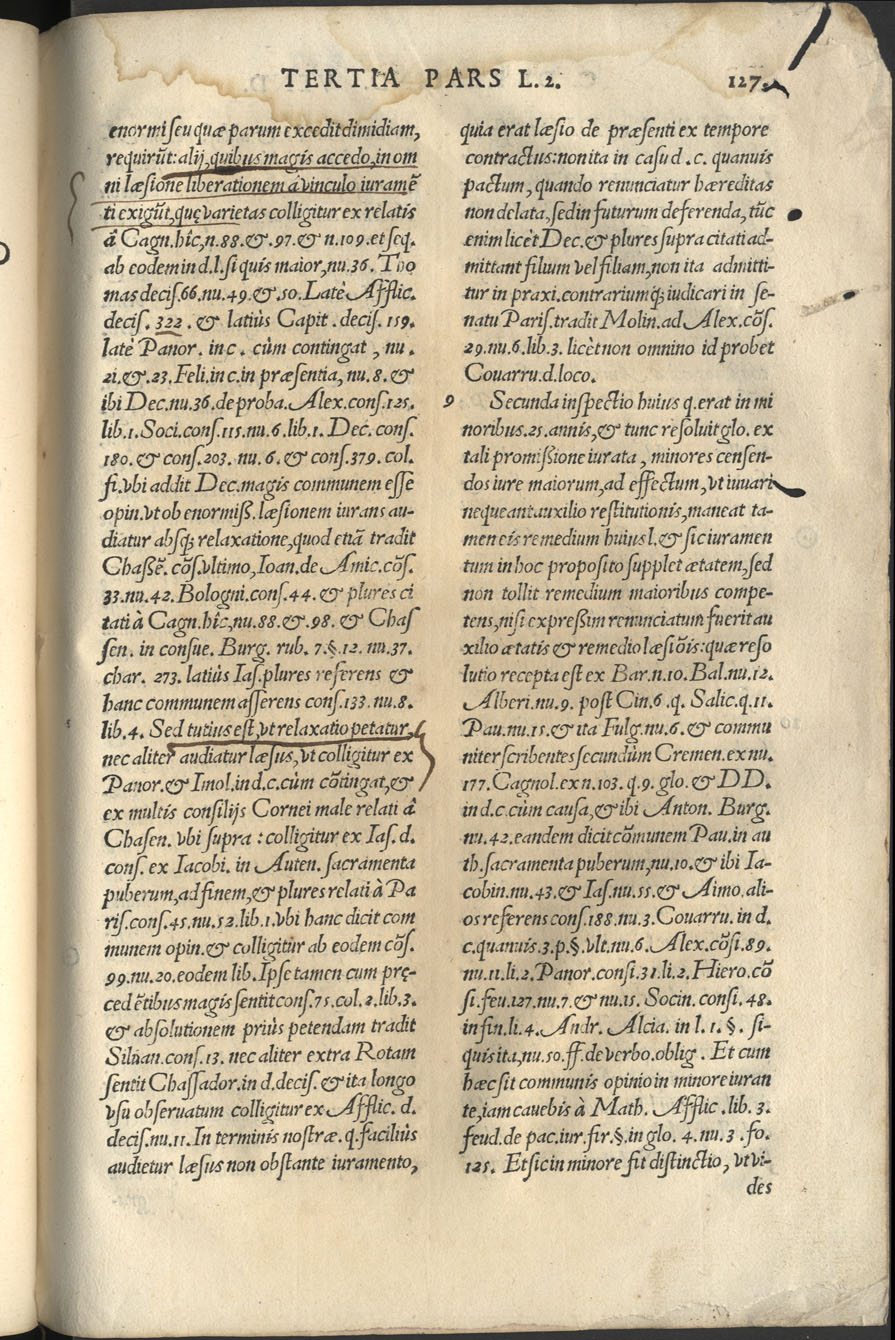 TERTIA PARS L. 2. 127.
enormi seu quæ parum excedit dimidiam,
requirũt: alij, quibus magis accedo, in om
ni læsione liberationem à vinculo iuramẽ
ti exigũt, quę varietas colligitur ex relatis
à Cagn. hîc, n. 88. & . 97. & n. 109. et seq.
ab eodem in d. l. si quis maior, nu. 36. Tho
mas decis. 66. nu. 49. & . 50. Latè Afflic.
decis. 322. & latiùs Capit. decis. 159.
latè Panor. in c. cùm contingat, nu.
21. & . 23. Feli. in c. in præsentia, nu. 8. &
ibi Dec. nu. 36. de proba. Alex. cons. 125.
lib. 1. Soci. cons. 115. nu. 6. lib. 1. Dec. cons.
180. & cons. 203. nu. 6. & cons. 379. col.
fi. vbi addit Dec. magis communem esse
opin. vt ob enormiß. læsionem iurans au-
diatur absq; relaxatione, quod etiã tradit
Chaßẽ. cõs. vltimo, Ioan. de Amic. cõs.
33. nu. 42. Bologni. cons. 44. & plures ci
tati à Cagn. hîc, nu. 88. & . 98. & Chas
sen. in consue. Burg. rub. 7. §. 12. nu. 37.
char. 273. latiùs Ias. plures referens &
hanc communem asserens cons. 133. nu. 8.
lib. 4. Sed tutius est, vt relaxatio petatur,
nec aliter audiatur læsus, vt colligitur ex
Panor. & Imol. in d. c. cùm cõtingat, &
ex multis consilijs Cornei male relati à
Chasen. vbi supra : colligitur ex Ias. d.
cons. ex Iacobi. in Auten. sacramenta
puberum, ad finem, & plures relati à Pa
ris. cons. 45. nu. 52. lib. 1. vbi hanc dicit com
munem opin. & colligitur ab eodem cõs.
99. nu. 20. eodem lib. Ipse tamen cum pręcedẽtibus magis sentit cons. 75. col. 2. lib. 3.
& absolutionem priùs petendam tradit
Siluan. cons. 13. nec aliter extra Rotam
sentit Chassador. in d. decis. & ita longo
vsu obseruatum colligitur ex Afflic. d.
decis. nu. 11. In terminis nostræ. q. faciliùs
audietur læsus non obstante iuramento,
quia erat læsio de præsenti ex tempore
contractus: non ita in casu d. c. quanuis
pactum, quando renunciatur hæreditas
non delata, sed in futurum deferenda, tũc
enim licèt Dec. & plures supra citati ad-
mittant filium vel filiam, non ita admitti-
tur in praxi. contrariumq; iudicari in se-
natu Paris. tradit Molin. ad Alex. cõs.
29. nu. 6. lib. 3. licèt non omnino id probet
Couarru. d. loco.
9 Secunda inspectio huius q. erat in mi
noribus. 25. annis, & tunc resoluit glo. ex
tali promißione iurata, minores censen-
dos iure maiorum, ad effectum, vt iuuari
nequeant auxilio restitutionis, maneat ta-
men eis remedium huius l. & sic iuramen
tum in hoc proposito supplet ætatem, sed
non tollit remedium maioribus compe-
tens, nisi expreßim renunciatum fuerit au
xilio ætatis & remedio læsiõis: quæ reso
lutio recepta est ex Bar. n. 10. Bal. nu. 12.
Alberi. nu. 9. post Cin. 6. q. Salic. q. 11.
Pau. nu. 15. & ita Fulg. nu. 6. & commu
niter scribentes secundùm Cremen. ex nu.
177. Cagnol. ex n. 103. q. 9. glo. & DD.
in d. c. cùm causa, & ibi Anton. Burg.
nu. 42. eandem dicit cõmunem Pau. in au
th. sacramenta puberum, nu. 10. & ibi Ia-
cobin. nu. 43. & Ias. nu. 55. & Aimo. ali-
os referens cons. 188. nu. 3. Couarru. in d.
c. quanuis. 3. p. §. vlt. nu. 6. Alex. cõsi. 89.
nu. 11. li. 2. Panor. consi. 31. li. 2. Hiero. cõ
si. feu. 127. nu. 7. & nu. 15. Socin. consi. 48.
in fin. li. 4. Andr. Alcia. in l. 1. §. si-
quis ita, nu. 50. ff. de verbo. oblig. Et cum
hæc sit communis opinio in minore iuran
te, iam cauebis à Math. Afflic. lib. 3.
feud. de pac. iur. fir. §. in glo. 4. nu. 3. fo.
125. Et sic in minore fit distinctio, vt vi-
des